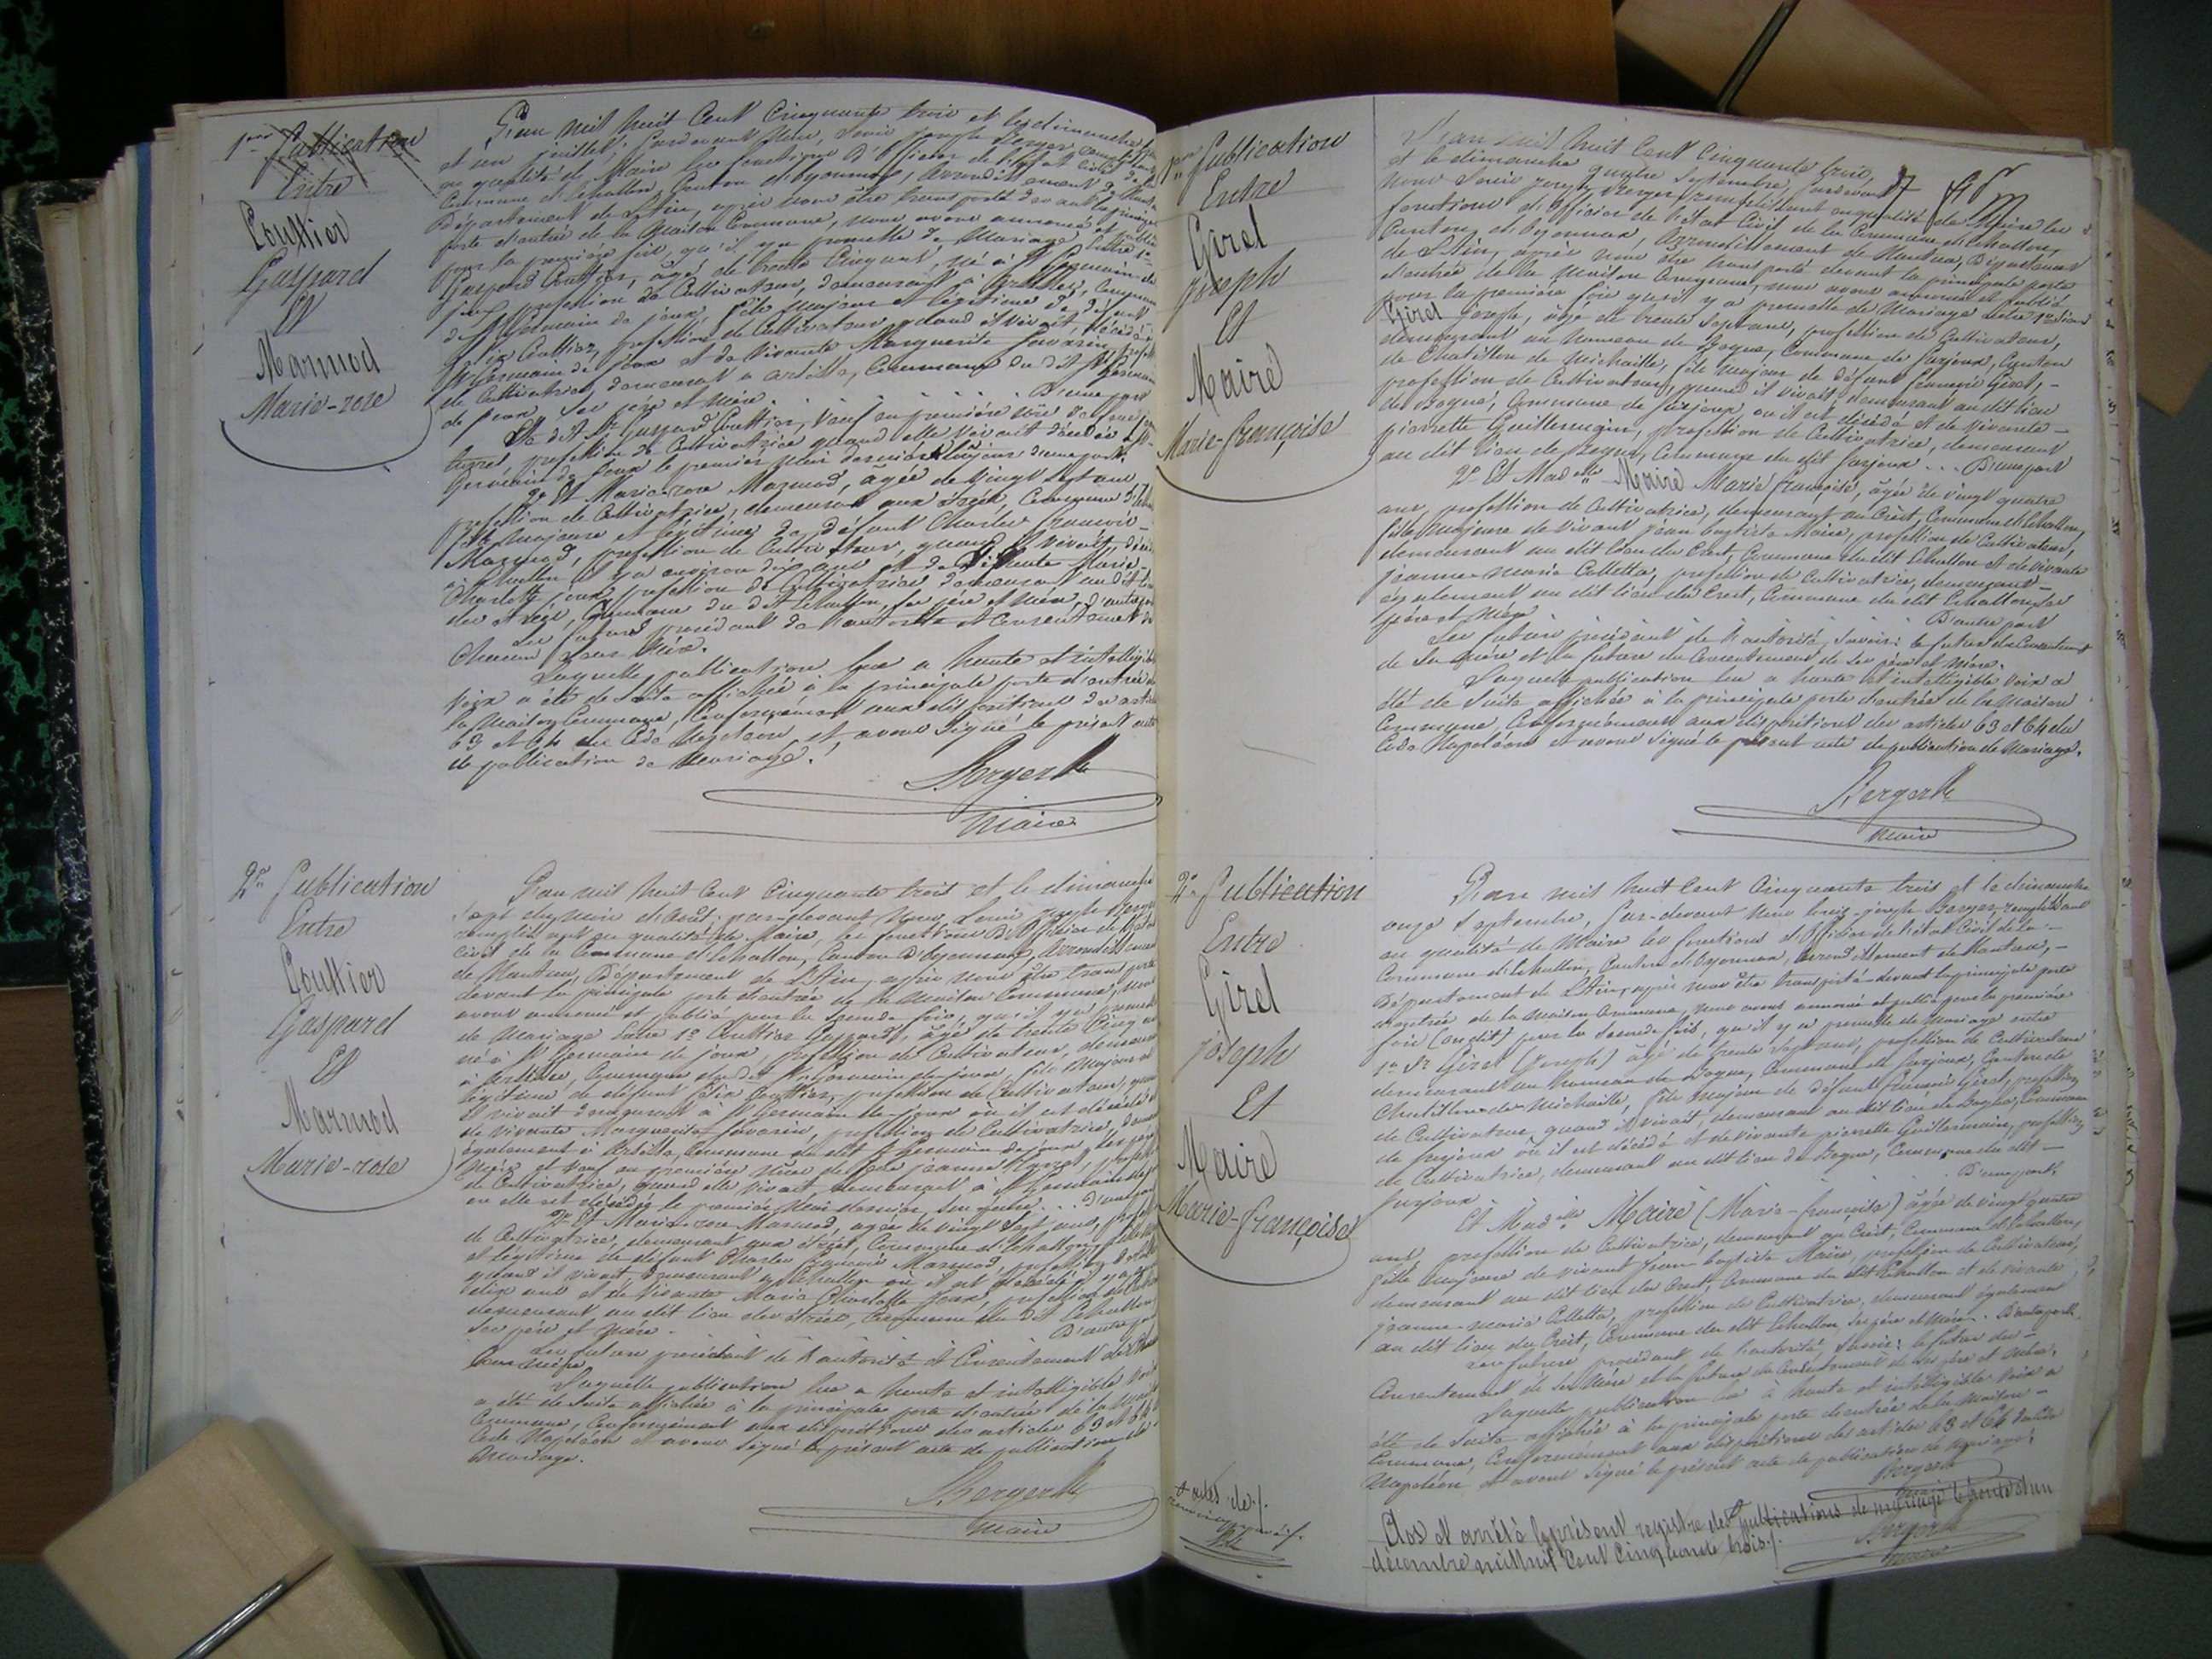 1ere Publication
Entre
Gouttier
Gaspard
Et
Marmod
Marie-rose
L'an mil huit Cent Cinquante trois et le dimanche
et un juillet; pardevant Nous, Louis Joseph Berger
en qualité de Maire les fonctions d'Officier de l'état civil de la
Commune d'Echallon, Canton d'Oyonnax, arrondissement de
Département de L'Ain, après nous être transporté devant la principale
porte d'entrée de la Maison Commune, nous avons annoncé et publié
pour la première fois, qu'il y a promesse de Mariage Entre 1°
Gaspard Gouttier, âgé de trente Cinq ans, né à St Germain de
joux, profession de Cultivateur, demeurant à Commune
de St Germain de joux, fils majeur et légitime de défunt
Félix Gouttier, profession de Cultivateur, quand il vivait, décédé à
St Germain de joux et de vivante Marguerite Savarin,
de Cultivatrice, demeurant à Commune du dit St Germain
de joux, ses père et mère. D'une part
Le dit Sr Gaspard Gouttier, Veuf en première
profession de Cultivatrice quand elle vivait décédée à St
Germain de joux le premier Mai dernier
2° Et Marie-rose Marmod, âgée de Vingt Sept ans
profession de Cultivatrice, demeurant aux Commune d'
fille majeure et légitime de défunt Charles François
Marmod, profession de Cultivateur, quand il vivait,
à Echallon il y a environ dix ans et de Marie
Charlotte joux, profession de Cultivatrice demeurant au dit lieu
des Commune du dit Echallon, ses père et mère, d'autre part
Les futurs procédant de l'autorité et Consentement de
Chacun Leur Mère.
Laquelle publication lue a haute et intelligible
voix a été de Suite affichée à la principale porte d'entrée de
la Maison Commune, Conformément aux dispositions des articles
63 et 64 du Code Napoléon et avons Signé le présent acte
de publication de Mariage.
Berger
Maire
2e Publication
Entre
Gouttier
Gaspard
Et
Marmod
Marie-rose
L'an mil huit Cent Cinquante trois et le dimanche
Sept du mois d'août; par-devant Nous, Louis Joseph Berger
remplissant en qualité de Maire, les fonctions d'Officier de l'état
civil de la Commune d'Echallon, Canton d'Oyonnax, arrondissement
de Nantua, Département de L'Ain, après nous être transporté
devant la principale porte d'entrée de la Maison Commune, nous
avons annoncé et publié pour la Seconde fois, qu'il y a promesse
de Mariage Entre 1° Gouttier Gaspard, âgé de trente Cinq ans
né à St Germain de joux, profession de Cultivateur, demeurant
à Commune du dit St Germain de joux, fils Majeur et
légitime de défunt Félix Gouttier, profession de Cultivateur, quand
il vivait demeurant à St Germain de joux où il est décédé et
de vivante Marguerite Savarin, profession de Cultivatrice,
également à Commune du dit St Germain de joux, ses père
et mère et Veuf en première
de Cultivatrice, quand elle vivait, demeurant à St Germain de joux
où elle est décédée le premier Mai dernier D'une part
2° Et Marie-rose Marmod, agée de vingt Sept ans,
de Cultivatrice, demeurant aux Commune d'Echallon, fille
et légitime de défunt Charles François Marmod, profession
quand il vivait, demeurant à Echallon où il est décédé il y a
dix ans et de Vivante Marie Charlotte joux, profession
demeurant au dit lieu des Commune du dit Echallon
ses père et mère. D'autre part
Les futurs procédant de l'autorité et Consentement de
Leur Mère
Laquelle publication lue a haute et intelligible voix
a été de Suite affichée à la principale porte d'entrée de la Maison
Commune, Conformément aux dispositions des articles 63 et 64 du
Code Napoléon et avons Signé le présent acte de publication de
Mariage.
Berger
Maire
1ere Publication
Entre
Girel
Joseph
Et
Maire
Marie-françoise
L'an mil huit Cent Cinquante trois,
et le dimanche quatre Septembre, pardevant
nous Louis Joseph Berger, remplissant en qualité de Maire les
fonctions d'Officier de l'état Civil de la Commune d'Echallon,
Canton d'Oyonnax, Arrondissement de Nantua, Département
de L'Ain, après nous être transporté devant la principale porte
d'entrée de la Maison Commune, nous avons annoncé et publié
pour la première fois qu'il y a promesse de Mariage entre 1°
Girel Joseph, âgé de trente Sept ans, profession de Cultivateur,
demeurant au hameau de Commune de Surjoux, Canton
de Chatillon de Michaille, fils Majeur de défunt François Girel,
profession de Cultivateur, quand il vivait, demeurant au dit lieu
de Commune de Surjoux, ou il est décédé et de Vivante
pierrette Guillermin, profession de Cultivatrice, demeurant
au dit lieu de Commune du dit Surjoux D'une part
2° Et Madelle Maire Marie françoise, âgée de vingt quatre
ans, profession de Cultivatrice, demeurant au Crêt, Commune d'Echallon,
fille majeure de vivant Jean Baptiste Maire, profession de Cultivateur,
demeurant au dit lieu du Crêt, Commune du dit Echallon et de vivante
Jeanne-marie Colletta, profession de Cultivatrice, demeurant
également au dit lieu du Crêt, Commune du dit Echallon, Ses
père et Mère. D'autre part
Les futurs procédant de l'autorité, Savoir: le futur du Consentement
de Sa Mère et la future du Consentement de Ses père et Mère.
Laquelle publication lue a haute et intelligible voix a
été de Suite affichée à la principale porte d'entrée de la Maison
Commune, Conformément aux dispositions des articles 63 et 64 du
Code Napoléon et avons Signé le présent acte de publication de Mariage.
Berger
Maire
2e Publication
Entre
Girel
Joseph
Et
Maire
Marie-françoise
L'an mil huit Cent Cinquante trois et le dimanche
onze Septembre, par-devant Nous Louis-joseph Berger, remplissant
en qualité de Maire les fonctions d'Officier de l'état Civil de la
Commune d'Echallon, Canton d'Oyonnax, arrondissement de Nantua,
Département de L'Ain, après nous être transporté devant la principale porte
d'entrée de la Maison Commune, nous avons annoncé et publié pour la première
fois (on dit) pour la Seconde fois, qu'il y a promesse de Mariage entre
1° Sr Girel (Joseph) âgé de trente Sept ans, profession de Cultivateur
demeurant au hameau de Commune de Surjoux, Canton de
Chatillon de Michaille, fils Majeur de défunt François Girel, profession
de Cultivateur, quand il vivait, demeurant au dit lieu de Commune
de Surjoux où il est décédé et de vivante pierrette Guillermin, profession
de Cultivatrice, demeurant au dit lieu de Commune du dit
Surjoux D'une part,
Et Madelle Maire (Marie-françoise) âgée de vingt quatre
ans, profession de Cultivatrice, demeurant au Crêt, Commune d'Echallon,
fille majeure de vivant Jean baptiste Maire, profession de Cultivateur,
demeurant au dit lieu du Crêt, Commune du dit Echallon et de vivante
jeanne-marie Colletta, profession de Cultivatrice, demeurant également
au dit lieu du Crêt, Commune du dit Echallon Ses père et Mère. D'autre part.
Les futurs procédant de l'autorité, Savoir: le futur du
Consentement de Sa Mère et la future du Consentement de Ses père et Mère.
Laquelle publication lue a haute et intelligible voix a
été de Suite affichée à la principale porte d'entrée de la Maison
Commune, Conformément aux dispositions des articles 63 et 64 du Code
Napoléon et avons Signé le présent acte de publication de Mariage.
Berger
Clos et arrêté le présent registre des publications de mariage le trente et un
décembre mil huit Cent Cinquante trois.
Berger